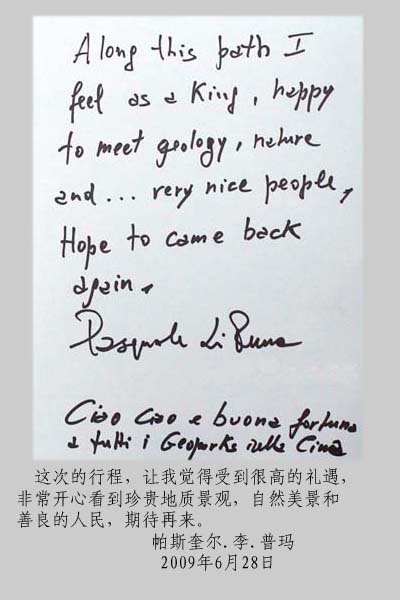 Along this path I
feel as a King, happy
to meet geology, nature
and... very nice people,
Hope to came back
again,
Pasquale Li Puma
Ciao Ciao e buona fortuna
a tutti i Geoparks della Cina
这次的行程，让我觉得受到很高的礼遇，
非常开心看到珍贵地质景观，自然美景和
善良的人民，期待再来。
帕斯奎尔.李.普玛
2009年6月28日